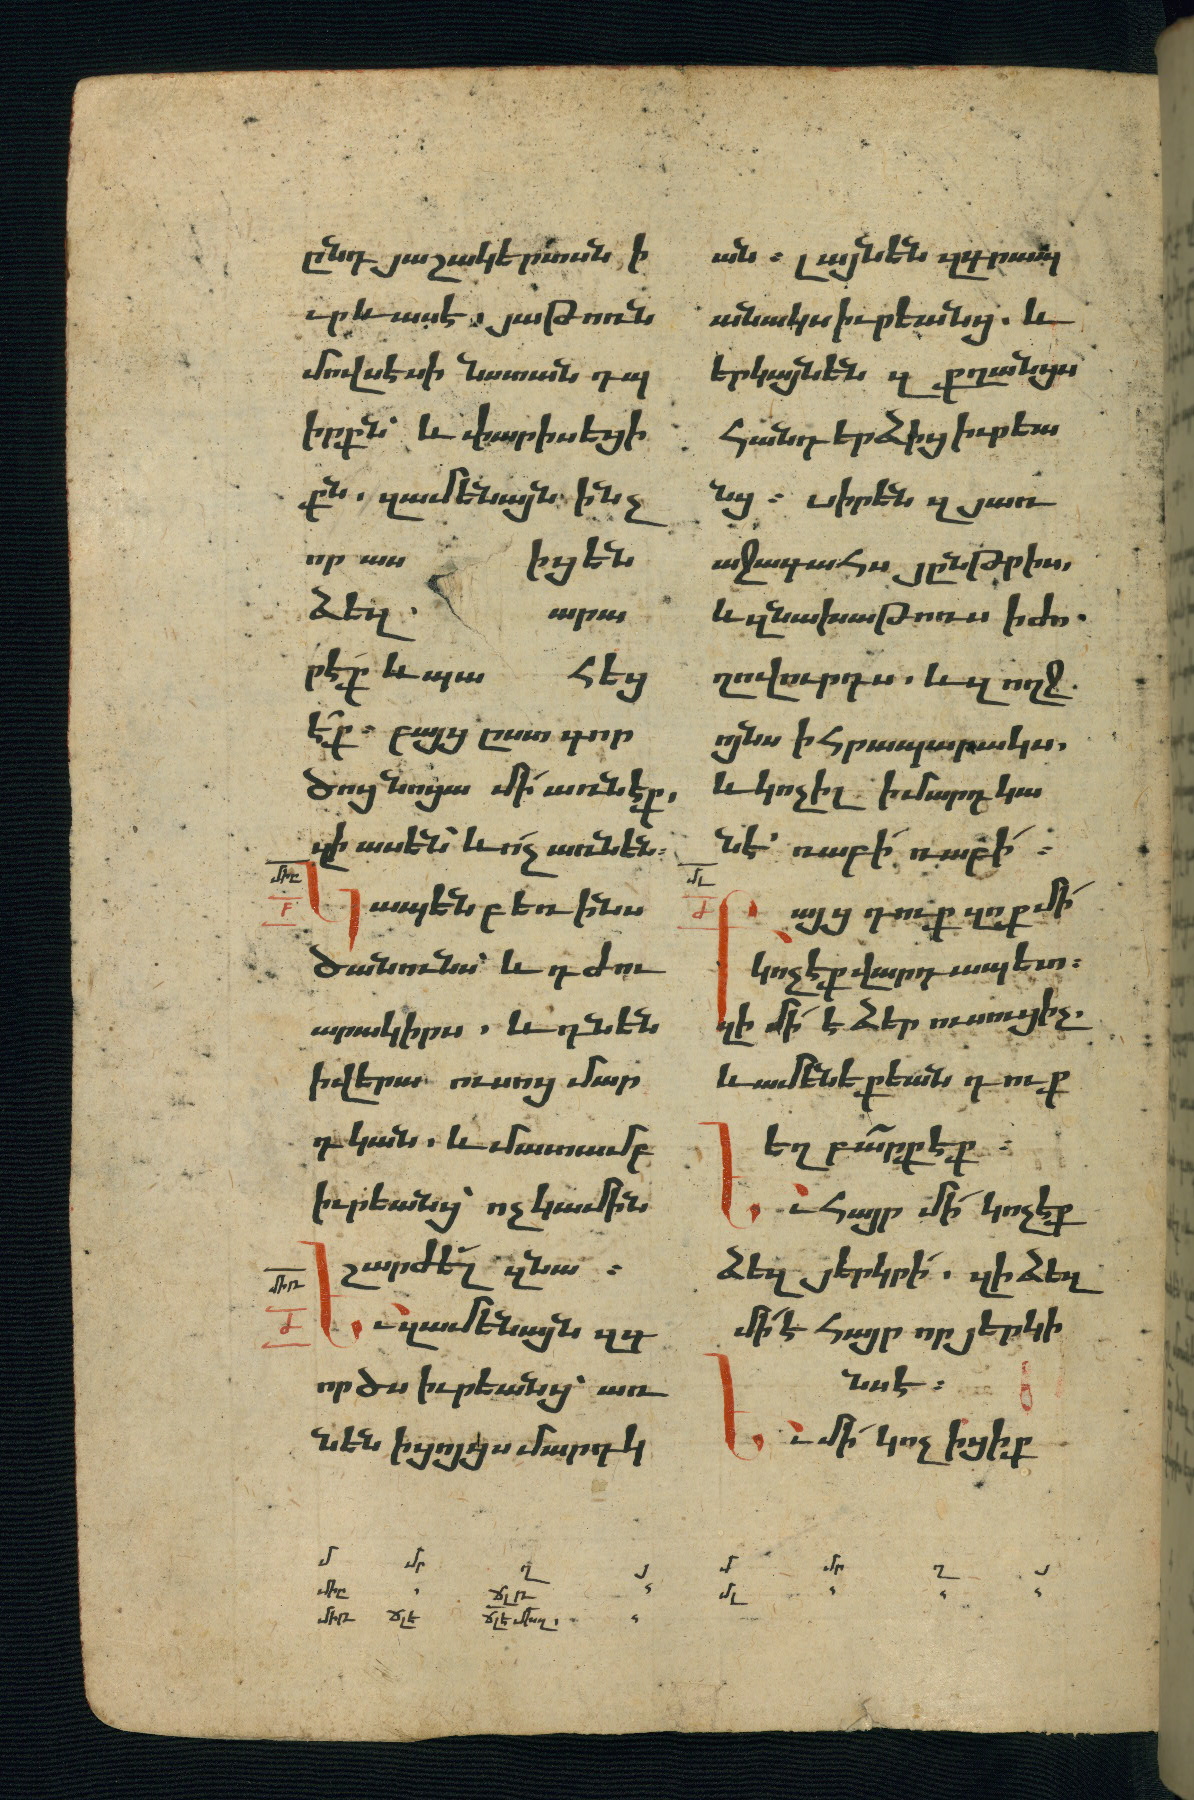 ընդ յաշակերտսն ի
ւր և ասէ. յաթոռն
մովսէսի նստան դպ
իրքն՝ և փարիսեցի
քն. զամենայն ինչ
որ աս իցեն
ձեզ. արա
րէք և պա հեց
է՛ք: բայց ըստ գոր
ծոց նոցա մի՛ առնէք,
զի ասեն՝ և ո՛չ առնեն:
միը
Կապեն բեռինս
ծանունս՝ և դժու
արակիրս. և դնեն
ի վերա ուսոց մար
դկան. և մատամբ
իւրեանց՝ ոչ կամին
շարժել զնա :
Եւ զամենայն զգ
ործս իւրեանց՝ առ
նեն ի ցոյցս մարդկ
ան: լայնեն զգրապ
անակս իւրեանց. և
երկայնեն զքղանցս
հանդերձից իւրեա
նց: սիրեն զյառ
աջագահս յընթրիս,
և զնախաթոռս ի ժո
ղովուրդս. և զողջ
ոյնս ի հրապարակս,
և կոչիլ ի մարդկա
նէ՝ ռաբի՛ ռաբի՛ :
մլ
Բայց դուք զոք մի՛
կոչէք վարդապետ:
զի մի՛ է ձեր ուսուցիչ.
և ամենեքեան դուք
եղբարք էք :
Եւ հայր մի՛ կոչէք
ձեզ յերկրի. զի ձեզ
մի՛ է հայր որ յերկի
նսէ:
Եւ մի՛ կոչիցիք
մ մր ղ յ մ մր ղ յ
միը մլ
ճլէ